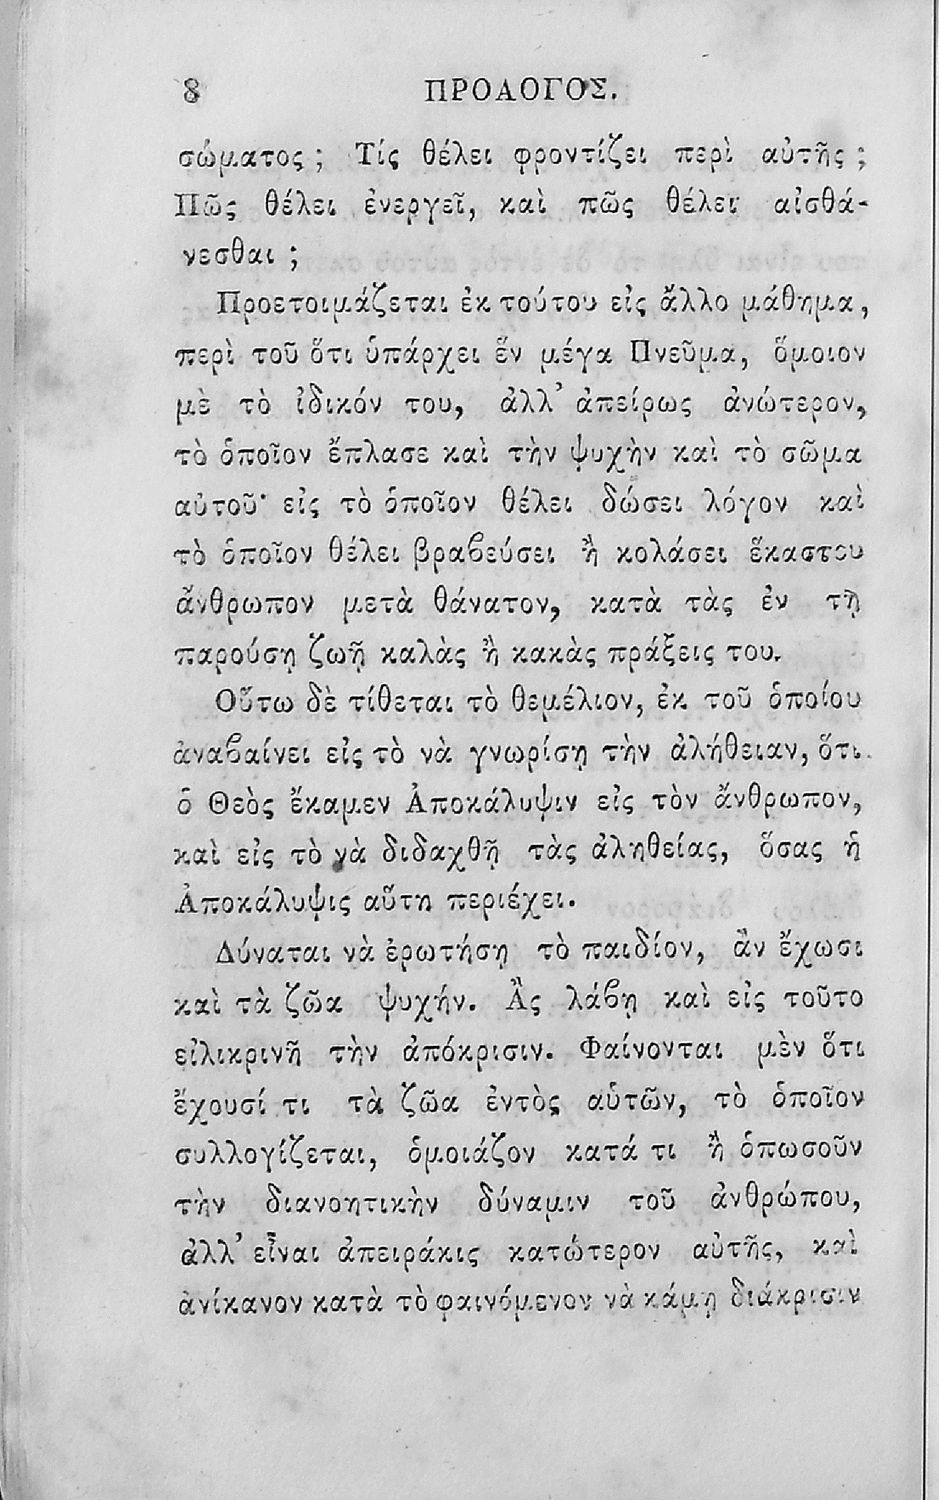 8 ΠΡΟΛΟΓΟΣ.
σώματος ; Τίς θέλει φροντίζει περὶ αὐτῆς ;
Πῶς θέλει ἐνεργεῖ, καὶ πῶς θέλει αἰσθά-
νεσθαι ;
Προετοιμάζεται ἐκ τούτου εἰς ἄλλο μάθημα,
περὶ τοῦ ὅτι ὑπάρχει ἓν μέγα Πνεῦμα, ὅμοιον
μὲ τὸ ἰδικόν του, ἀλλ’ ἀπείρως ἀνώτερον,
τὸ ὁποῖον ἔπλασε καὶ τὴν ψυχὴν καὶ τὸ σῶμα
αὐτοῦ· εἰς τὸ ὁποῖον θέλει δώσει λόγον καὶ
τὸ ὁποῖον θέλει βραϐεύσει ἢ κολάσει ἕκαστου
ἄνθρωπον μετὰ θάνατον, κατὰ τὰς ἐν τῇ
παρούσῃ ζωῇ καλὰς ἢ κακὰς πράξεις του.
Οὕτω δὲ τίθεται τὸ θεμέλιον, ἐκ τοῦ ὁποίου
ἀναϐαίνει εἰς τὸ νὰ γνωρίσῃ τὴν ἀλήθειαν, ὅτι
ὁ Θεὸς ἔκαμεν Ἀποκάλυψιν εἰς τὸν ἄνθρωπον,
καὶ εἰς τὸ νὰ διδαχθῇ τὰς ἀληθείας, ὅσας ἡ
Ἀποκάλυψις αὕτη περιέχει.
Δύναται νὰ ἐρωτήσῃ τὸ παιδίον, ἂν ἔχωσι
καὶ τὰ ζῶα ψυχήν. Ἂς λάϐῃ καὶ εἰς τοῦτο
εἰλικρινῆ τὴν ἀπόκρισιν. Φαίνονται μὲν ὅτι
ἔχουσί τι τὰ ζῶα ἐντὸς αὑτῶν, τὸ ὁποῖον
συλλογίζεται, ὁμοιάζον κατά τι ἢ ὁπωσοῦν
τὴν διανοητικὴν δύναμιν τοῦ ἀνθρώπου,
ἀλλ’ εἶναι ἀπειράκις κατώτερον αὐτῆς, καὶ
ἀνίκανον κατὰ τὸ φαινόμενον νὰ κάμῃ διάκρισιν